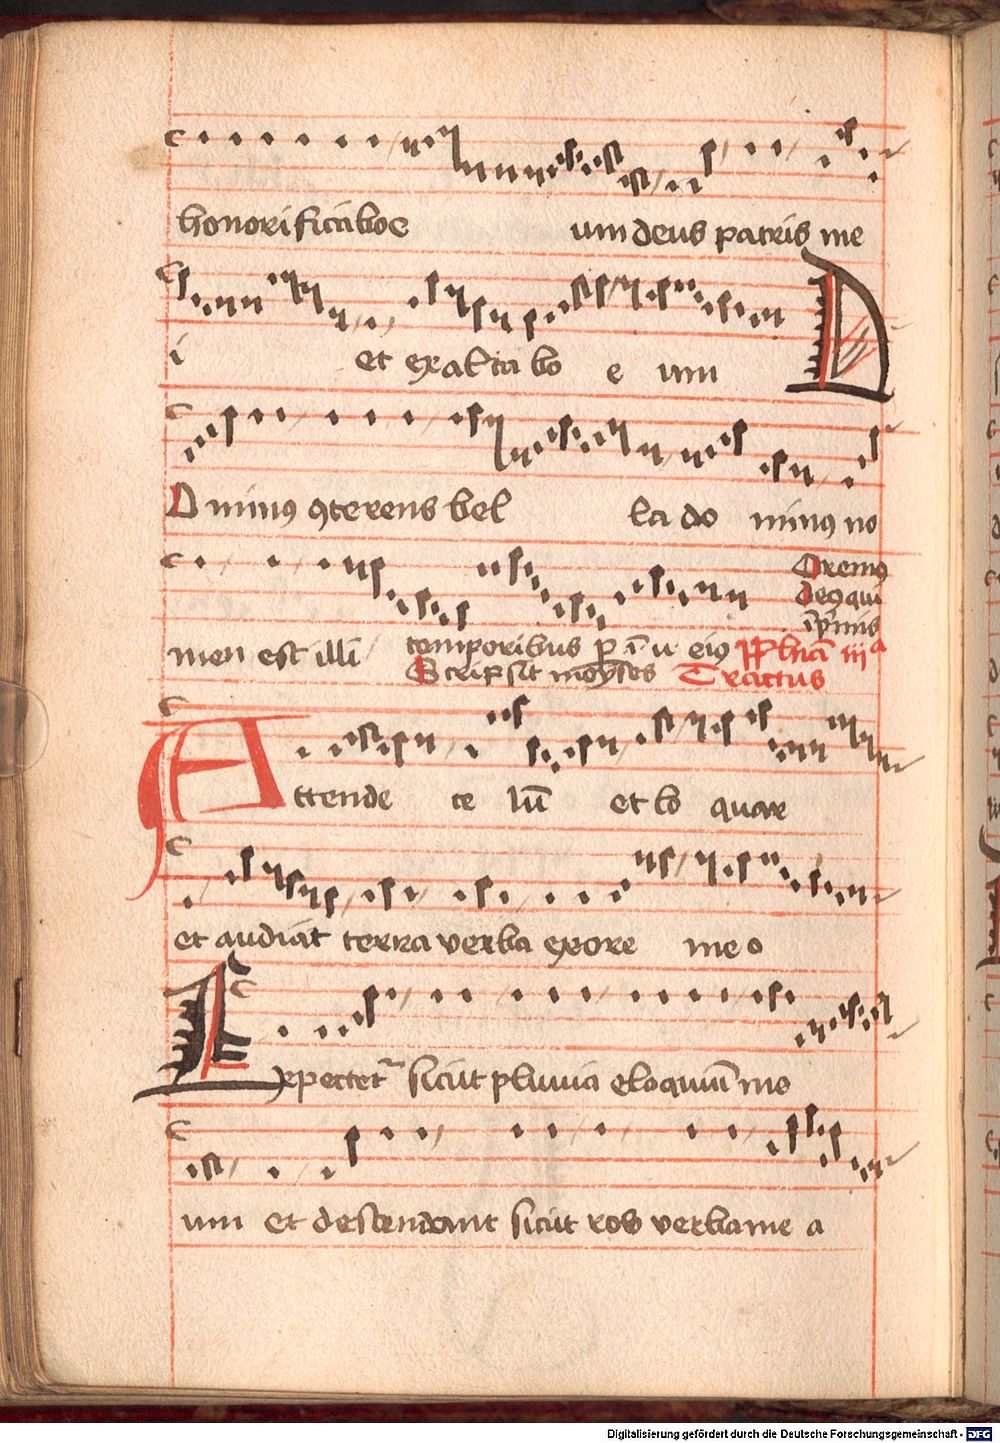 honorificaboe um deus patris me
i et exaltabo e um D
Ominus ꝯterens bel la do minus no
Oremus
deus qui
i pͥmis
men est illi temporibus ꝑ i u eius Ꝓphiam iiijᵃ
Scripsit moyses Tractus
Attende ce lū et lo quar
et audiat terra verba exore meo
Expectet sicut pluvia eloquiū me
um et descendant sicut ros verba me a
Digitalisierung gefördert durch die Deutsche Forschungsgemeinschaft - DFG